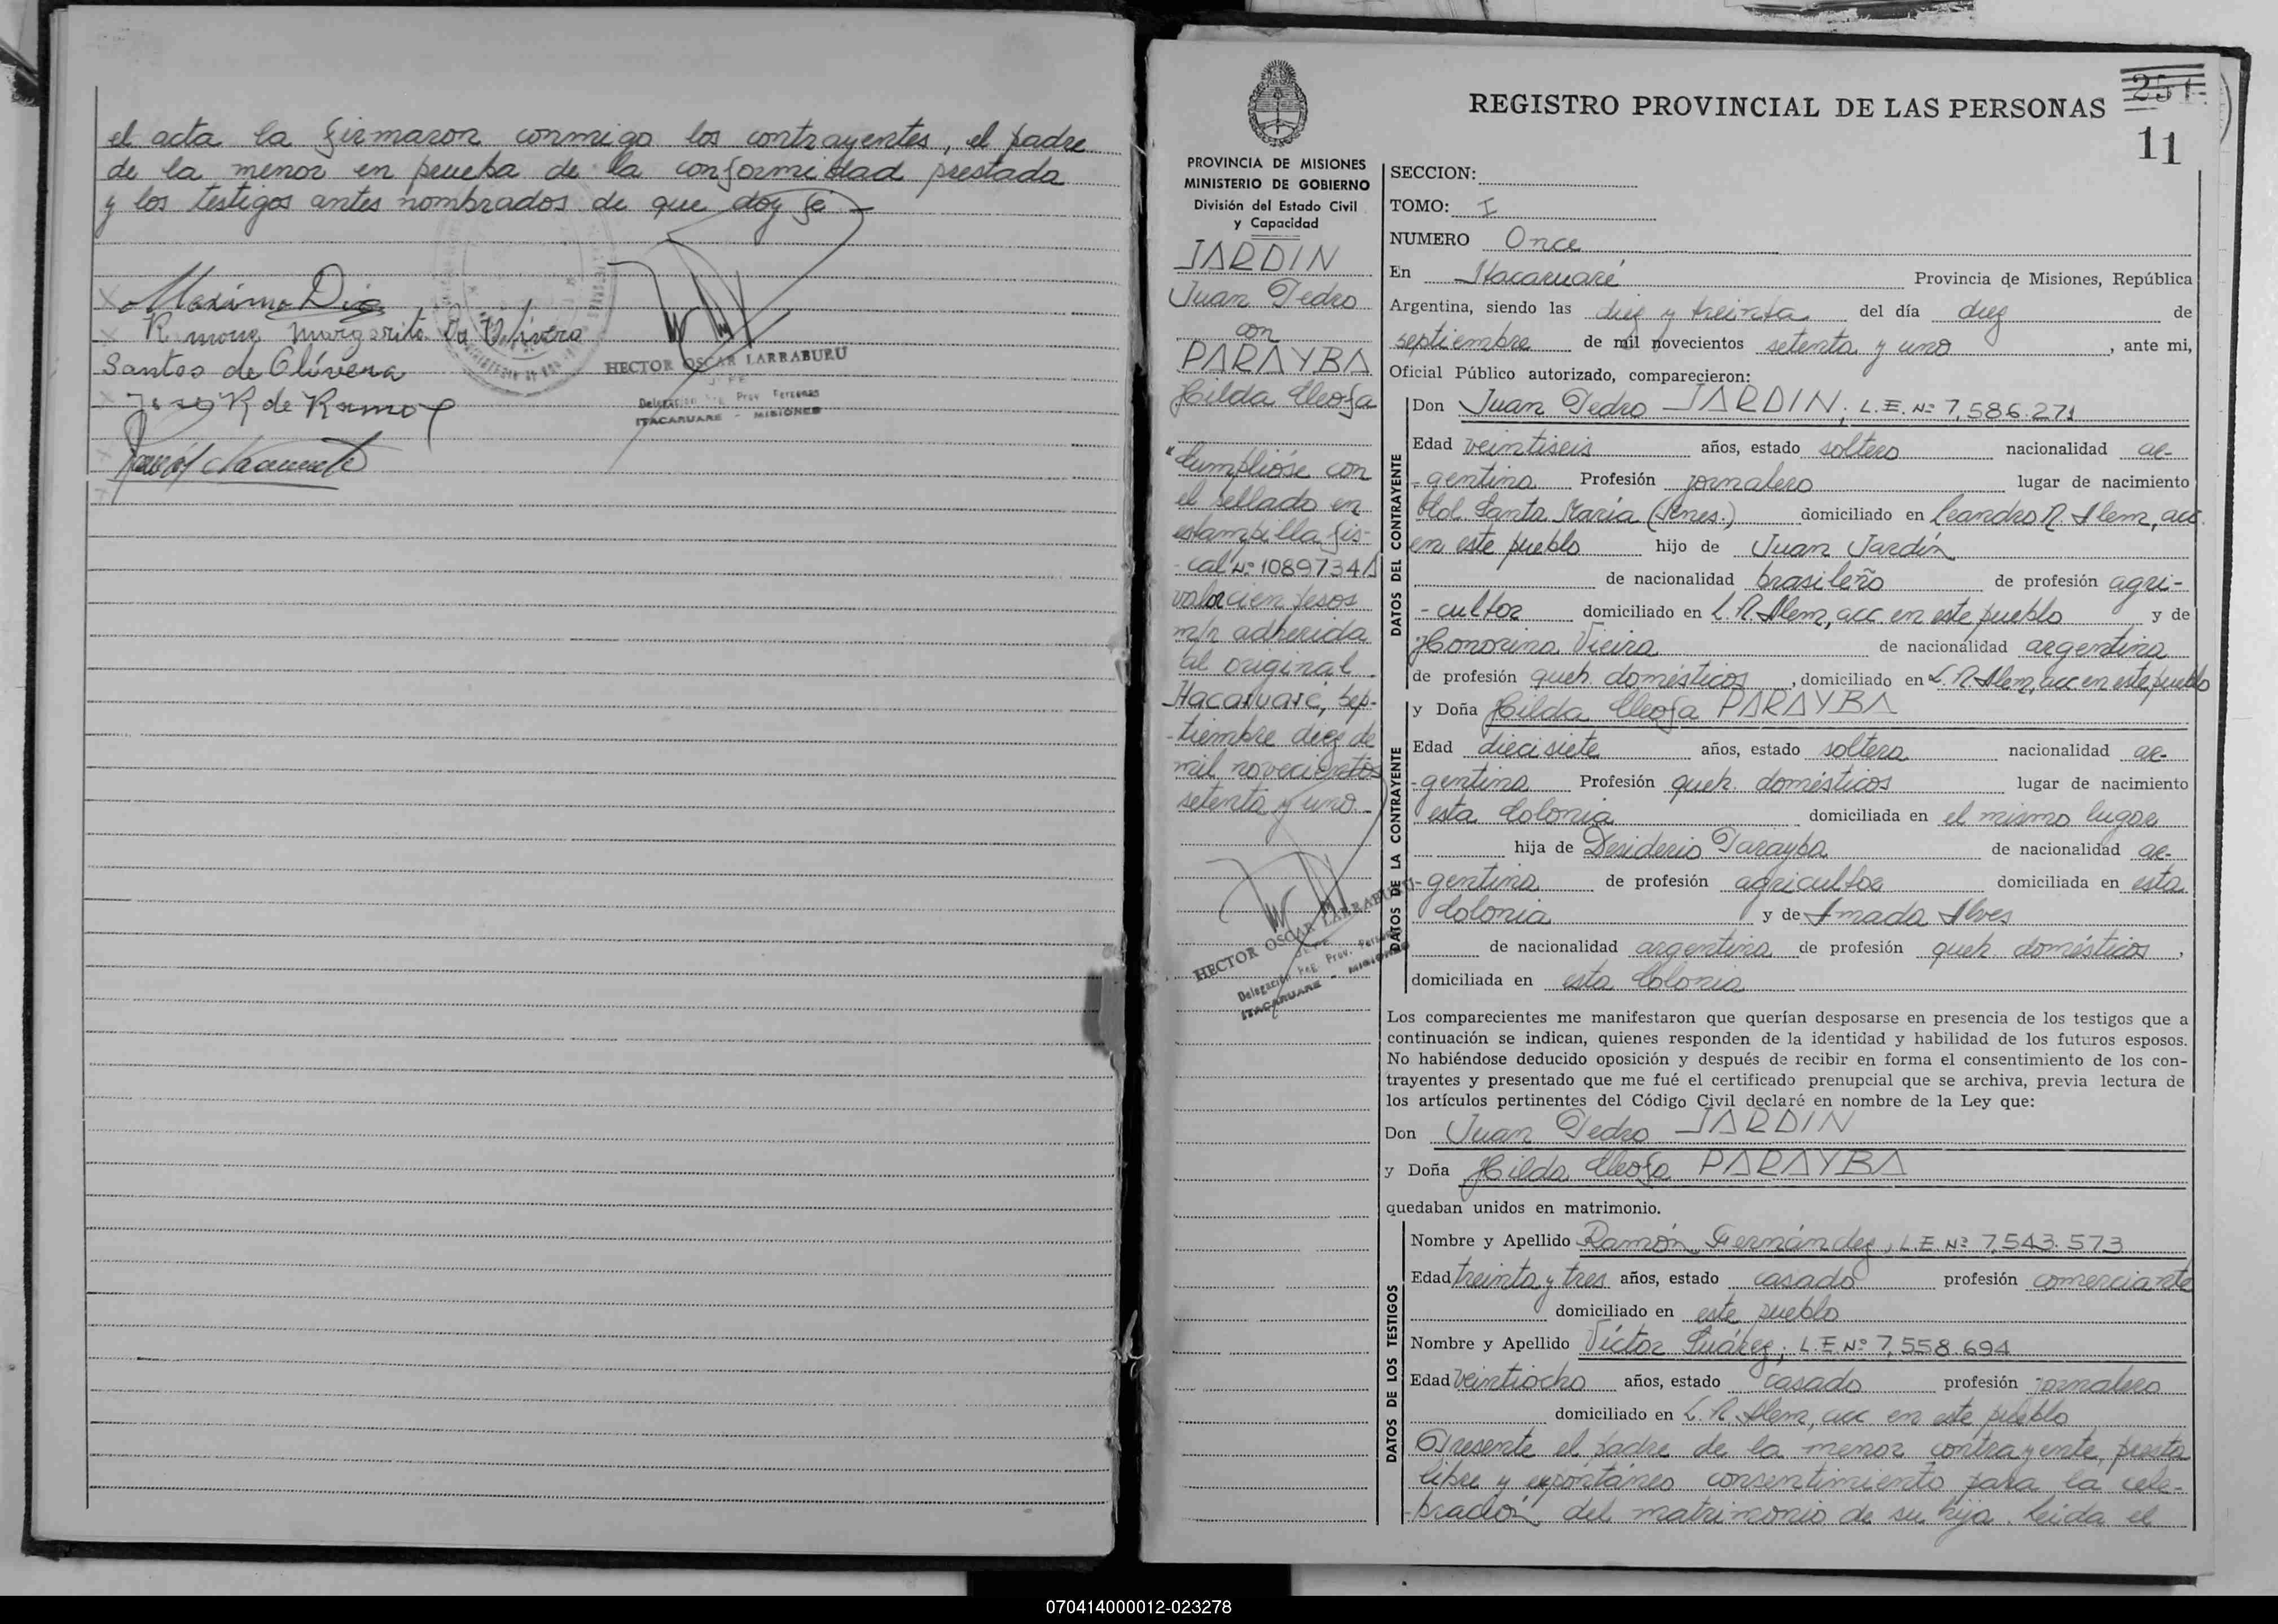 el acta la firmaron conmigo los contrayentes, el padre
de la menor en prueba de la conformidad prestada
y los testigos antes nombrados de que doy fe
Maximo Dia
Ramona Margarita Da Olivera
Santos de Olivera
R de Ramos
HECTOR OSCAR LARRABURU
JEFE
Delegación Reg. Prov. Personas
ITACARUARE - MISIONES
251
11
REGISTRO PROVINCIAL DE LAS PERSONAS
PROVINCIA DE MISIONES
MINISTERIO DE GOBIERNO
División del Estado Civil
y Capacidad
JARDIN
Juan Pedro
con
PARAYBA
Hilda Cleofa
"Cumplióse con
el sellado en
estampilla fis-
-cal Nº 1089734A
valor cien pesos
m/n adherida
al original.
Itacaruaré, Sep-
-tiembre diez de
mil novecientos
setenta y uno.-
HECTOR OSCAR LARRABURU
JEFE
Delegación Reg. Prov. Personas
ITACARUARE - MISIONES
SECCION:
TOMO: I
NUMERO Once
En Itacaruaré Provincia de Misiones, República
Argentina, siendo las diez y treinta del día diez de
septiembre de mil novecientos setenta y uno, ante mi,
Oficial Público autorizado, comparecieron:
DATOS DEL CONTRAYENTE
Don Juan Pedro JARDIN, L.E. Nº 7.586.271
Edad veintiseis años, estado soltero nacionalidad ar-
-gentina Profesión jornalero lugar de nacimiento
Col. Santa María (Mnes.) domiciliado en Leandro N. Alem, acc.
en este pueblo hijo de Juan Jardín
de nacionalidad brasileño de profesión agri-
-cultor domiciliado en L. N. Alem, acc en este pueblo y de
Honorina Vieira de nacionalidad argentina
de profesión queh. domésticos, domiciliado en L. N. Alem, acc en este pueblo
DATOS DE LA CONTRAYENTE
y Doña Hilda Cleofa PARAYBA
Edad diecisiete años, estado soltera nacionalidad ar-
-gentina Profesión queh. domésticos lugar de nacimiento
esta Colonia domiciliada en el mismo lugar
hija de Desiderio Parayba de nacionalidad ar-
-gentina de profesión agricultor domiciliada en esta
Colonia y de Amada Alves
de nacionalidad argentina de profesión queh. domésticos,
domiciliada en esta Colonia
Los comparecientes me manifestaron que querían desposarse en presencia de los testigos que a
continuación se indican, quienes responden de la identidad y habilidad de los futuros esposos.
No habiéndose deducido oposición y después de recibir en forma el consentimiento de los con-
trayentes y presentado que me fué el certificado prenupcial que se archiva, previa lectura de
los artículos pertinentes del Código Civil declaré en nombre de la Ley que:
Don Juan Pedro JARDIN
y Doña Hilda Cleofa PARAYBA
quedaban unidos en matrimonio.
DATOS DE LOS TESTIGOS
Nombre y Apellido Ramón Fernández, L.E. Nº 7.543.573
Edad treinta y tres años, estado casado profesión comerciante
domiciliado en este pueblo
Nombre y Apellido Víctor Suárez, L.E. Nº 7.558.694
Edad veintiocho años, estado casado profesión jornalero
domiciliado en L. N. Alem, acc en este pueblo
Presente el padre de la menor contrayente, presta
libre y espontáneo consentimiento para la cele-
-bración del matrimonio de su hija. Leida el
070414000012-023278